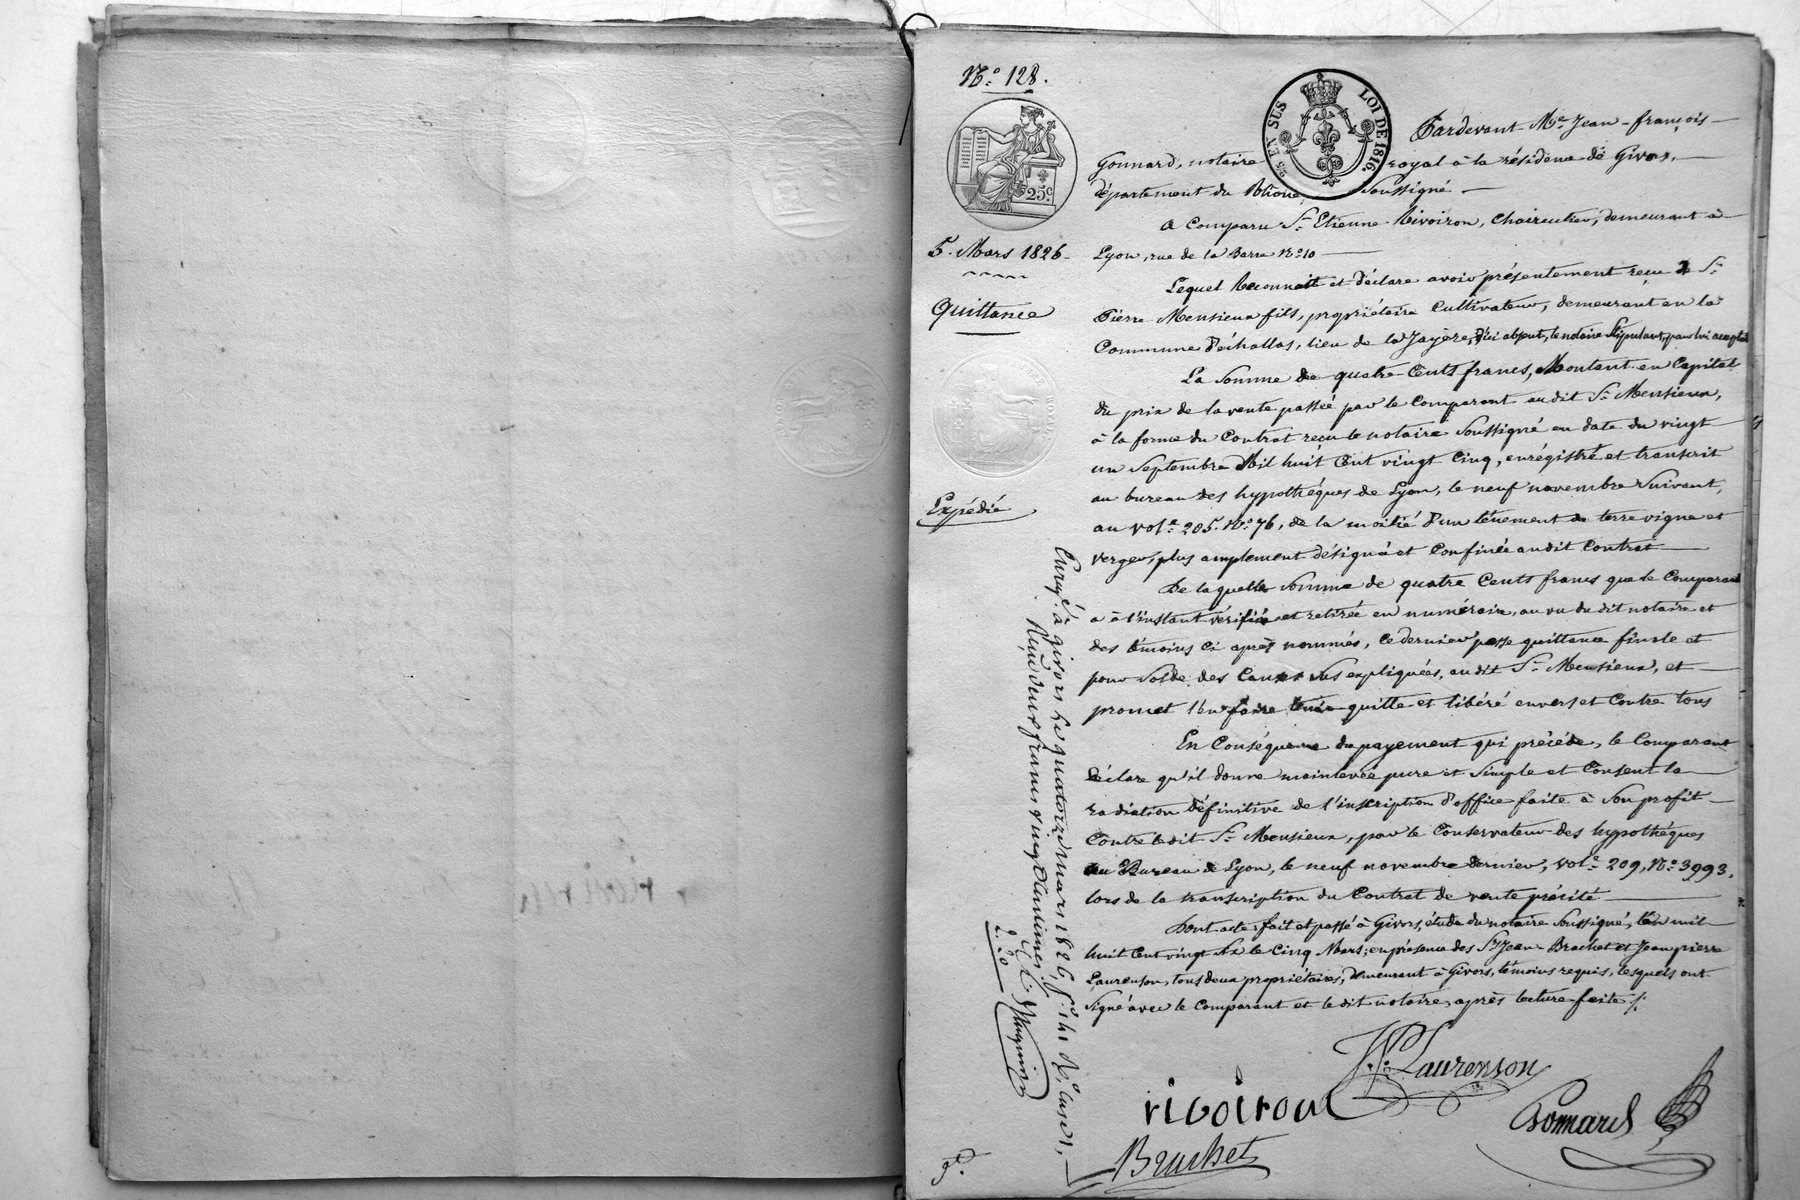 N.° 128.
25c.
5. Mars 1826.
Quittance
Expédié
2 5es EN SUS
LOI DE 1816.
Pardevant Me. Jean-françois
Gonnard, notaire royal à la résidence de Givors,
département du Rhône, soussigné
a Comparu Sr. Etienne Rivoiron, Chaircutier, demeurant à
Lyon, rue de la Barre N.° 10
Lequel Reconnait et déclare avoir présentement reçu de Sr.
Pierre Mensieux fils, propriétaire Cultivateur, demeurant en la
Commune d'échallas, lieu de la Jayère, d'ici absent, le notaire stipulant, pour lui acceptant
La Somme de quatre Cents francs, Montant en Capital
du prix de la vente passée par le Comparant au dit Sr. Mensieux,
à la forme du Contrat reçu le notaire soussigné en date du vingt
un Septembre Mil huit Cent vingt Cinq, enrégistré et transcrit
au bureau des hypothéques de Lyon, le neuf novembre Suivant,
au vole. 205. N.° 76, de la moitié d'un ténement de terre vigne et
verger, plus amplement désigné et Confiné au dit Contrat
De laquelle Somme de quatre Cents francs que le Comparant
a à l'instant vérifiée et retirée en numéraire, au vu du dit notaire et
des témoins ci après nommés, ce dernier passe quittance finale et
pour Solde des Causes sus expliquées, au dit Sr. Mensieux, et
promet l'en faire tenir quitte et libéré envers et Contre tous
En Conséquence du payement qui précéde, le Comparant
déclare qu'il donne mainlevée pure et Simple et Consent la
radiation définitive de l'inscription d'office faite à Son profit
Contre le dit Sr. Mensieux, par le Conservateur des hypothéques
au Bureau de Lyon, le neuf novembre dernier, vole. 209, N.° 3993,
lors de la transcription du Contrat de vente précité
Dont acte: fait et passé à Givors, étude du notaire Soussigné, l'an mil
huit Cent vingt Six le Cinq Mars; en présence des Srs Jean Brachet et Jean pierre
Laurenson, tous deux propriétaires, demeurant à Givors, témoins requis, lesquels ont
Signé avec le Comparant et le dit notaire, après lecture faite
Enregé. à givors le quatorze mars 1826 fo. 141 Ro. Case 1,
Reçu deux francs vingt Centimes
2. 20
J. P. Laurenson
rivoiron
Gonnard
Brachet